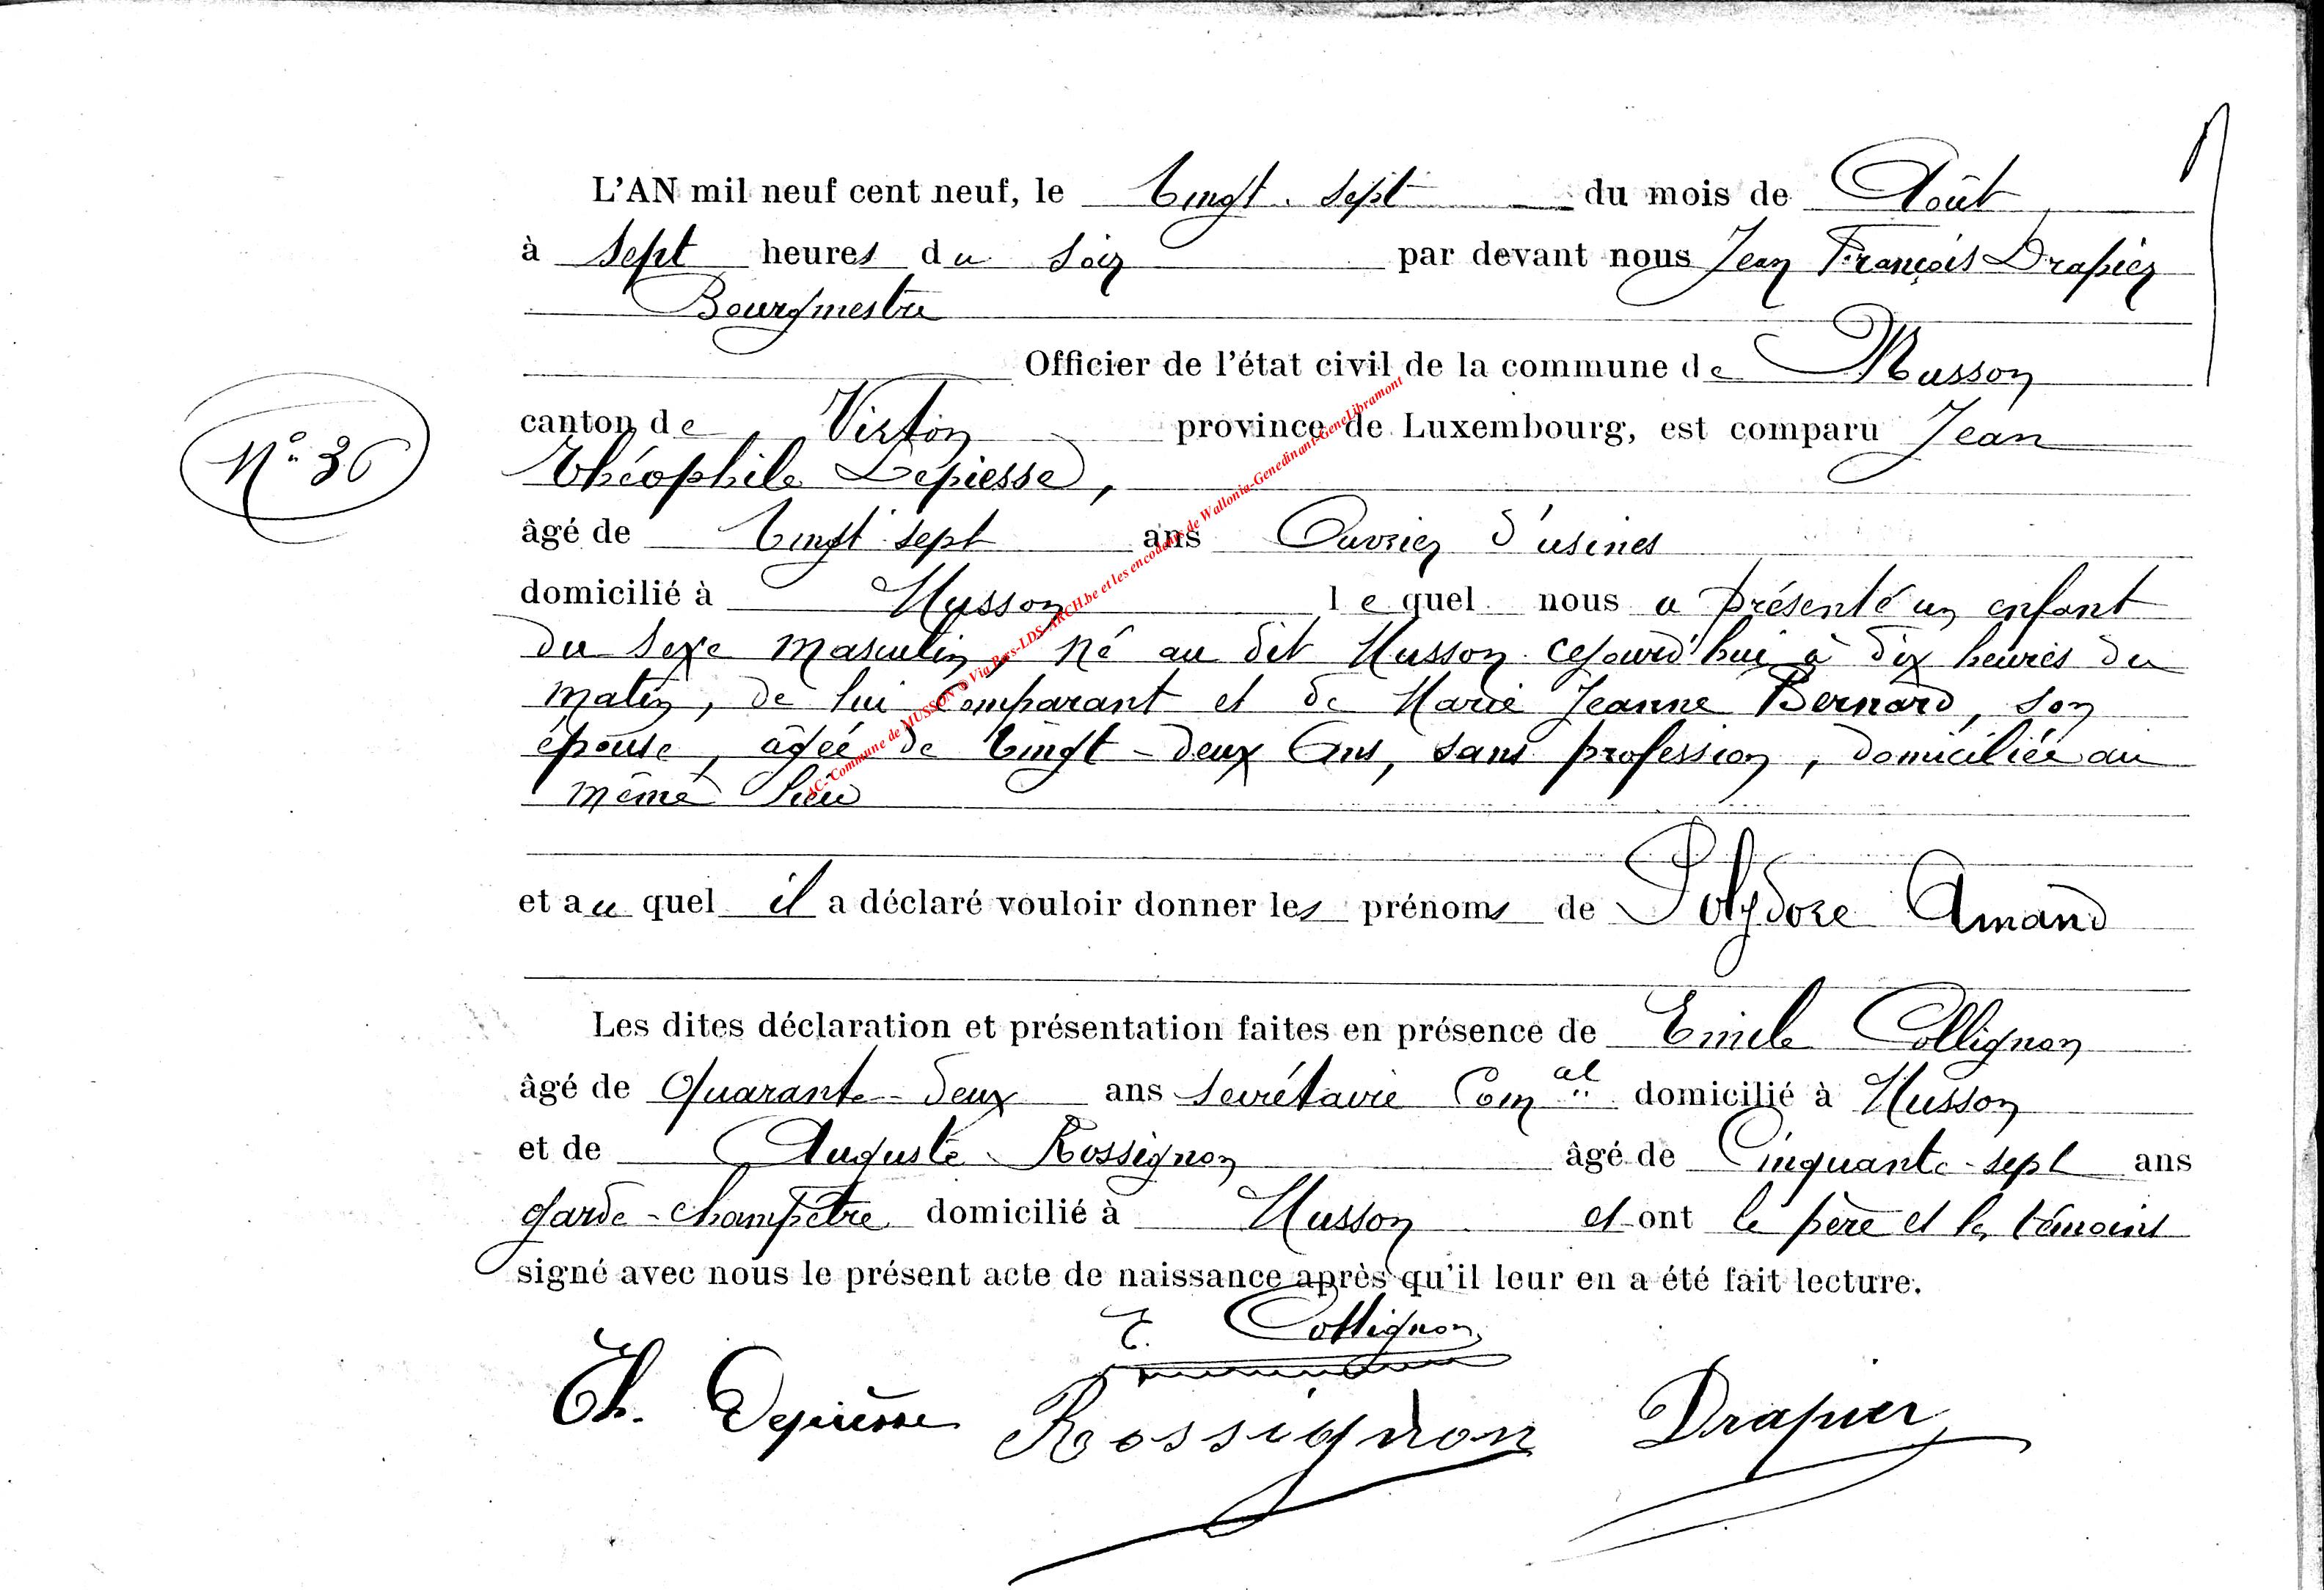 L'AN mil neuf cent neuf, le Vingt-sept du mois de Août
à Sept heures du Soir par devant nous Jean François Drapier
Bourgmestre
Officier de l'état civil de la commune de Musson
canton de Virton province de Luxembourg, est comparu Jean
N° 36
Théophile Depiesse,
âgé de Vingt sept ans Ouvrier d'usines
domicilié à Musson lequel nous a présenté un enfant
du Sexe masculin, né au dit Musson cejourd'hui à dix heures du
matin, de lui Comparant et de Marie Jeanne Bernard, son
épouse, âgée de Vingt-deux Ans, sans profession, domiciliée au
même lieu
et au quel il a déclaré vouloir donner les prénoms de Polydore Amand
Les dites déclaration et présentation faites en présence de Emile Collignon
âgé de Quarante-deux ans Secrétaire Comal domicilié à Musson
et de Auguste Rossignon âgé de Cinquante-sept ans
garde-champêtre domicilié à Musson et ont le père et les témoins
signé avec nous le présent acte de naissance après qu'il leur en a été fait lecture.
E. Collignon
Th. Depiesse Rossignon Drapier
AC-Commune de MUSSON © Via Bers-LDS-ARCH.be et les encodeurs de Wallonia-Genedinant-GeneLibramont